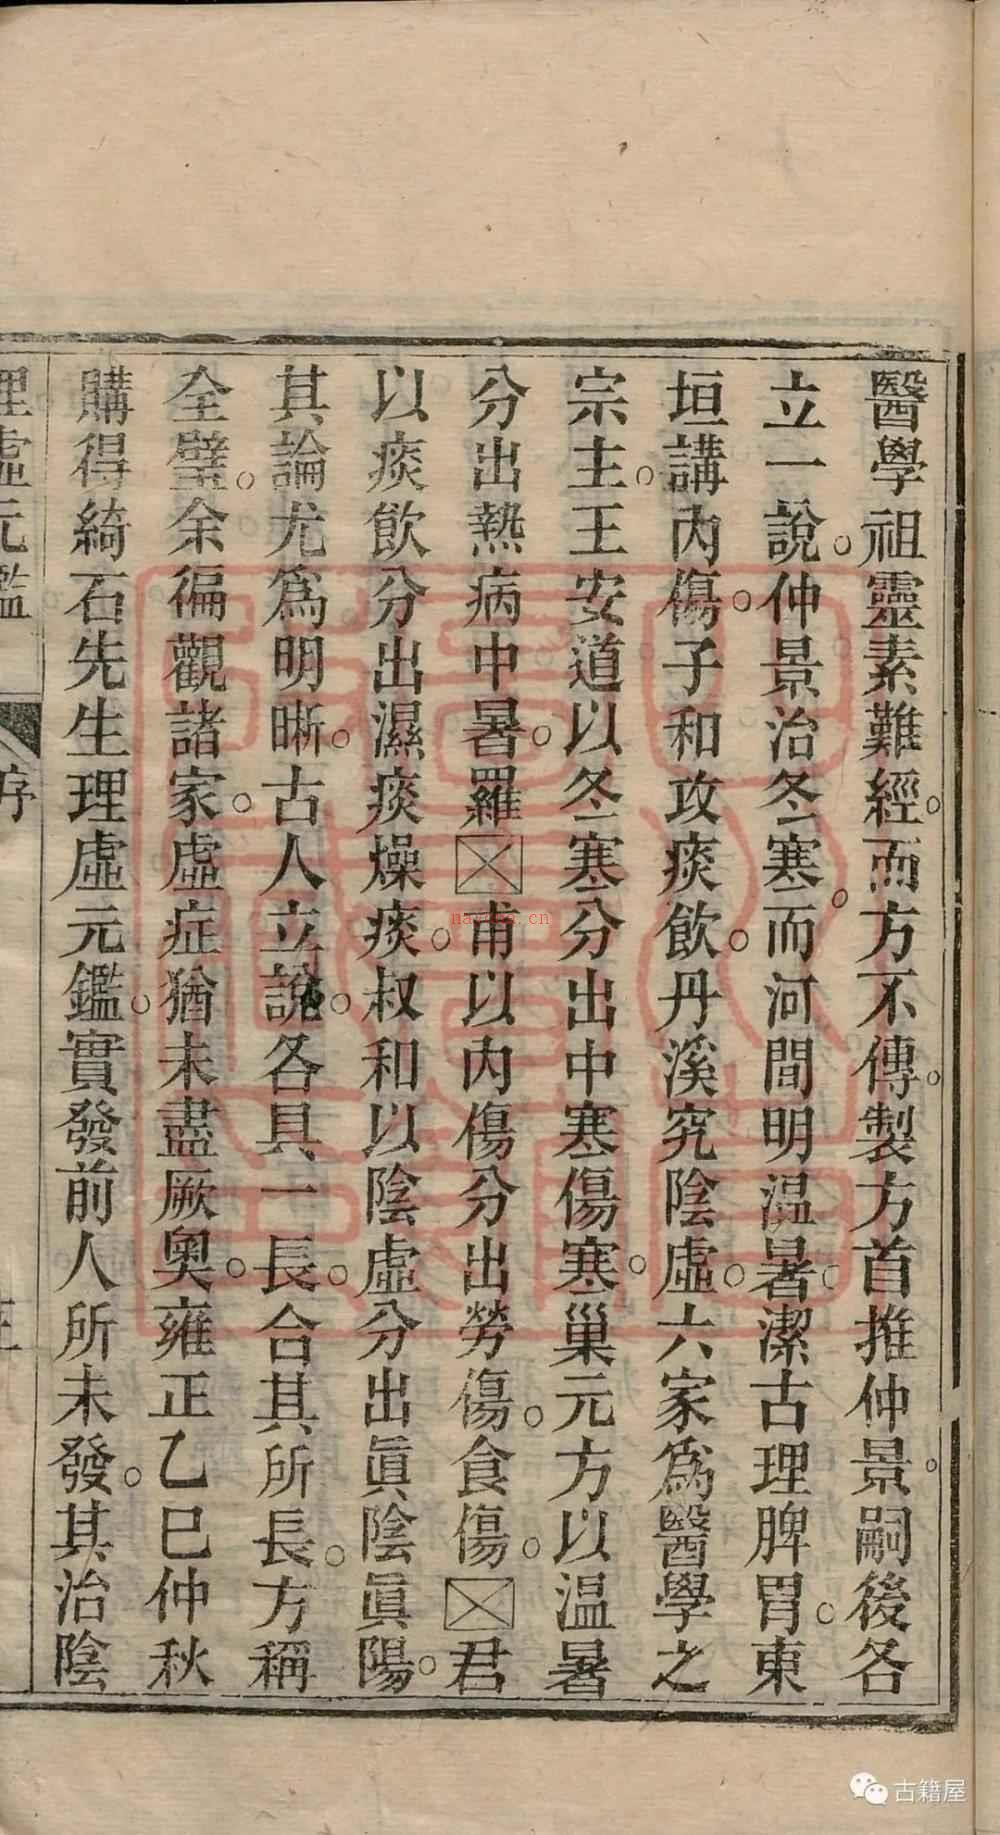 醫學祖靈素難經。而方不傳。製方首推仲景。嗣後各
立一說。仲景治冬寒。而河間明溫暑。潔古理脾胃。東
垣講內傷。子和攻痰飲。丹溪究陰虛。六家爲醫學之
宗主。王安道以冬寒分出中寒傷寒。巢元方以溫暑
分出熱病中暑。羅☒甫以內傷分出勞傷。食傷。☒君
以痰飲分出濕痰燥痰。叔和以陰虛分出眞陰眞陽。
其論尤爲明晰。古人立說。各具一長。合其所長。方稱
全璧。余徧觀諸家。虛症猶未盡厥奧。雍正乙巳仲秋
購得綺石先生理虛元鑑。實發前人所未發。其治陰
理虛元鑑
序
古籍屋